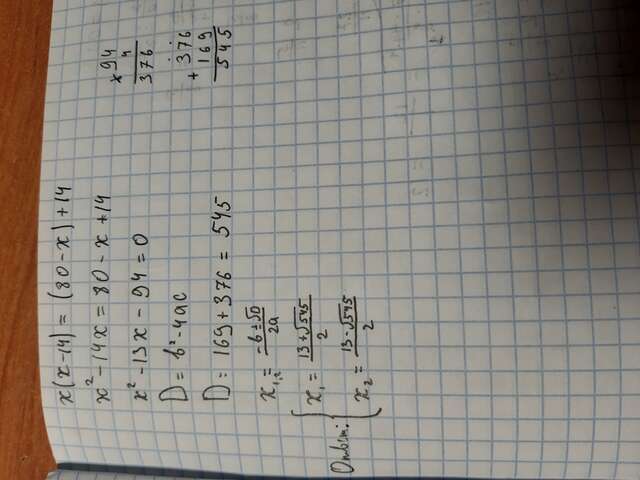 x(x-14) = (80-x)+14
x²-14x = 80-x+14
x²-13x-94=0
D = b²-4ac
D = 169+376 = 545
x₁,₂ = -b±√D / 2a
x₁ = 13+√545 / 2
Ответ:
x₂ = 13-√545 / 2
×94
4
376
+376
169
545